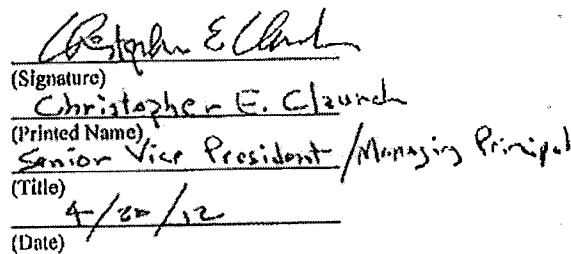 Christopher E Claunch
(Signature)
Christopher E. Claunch
(Printed Name)
Senior Vice President / Managing Principal
(Title)
4/20/12
(Date)